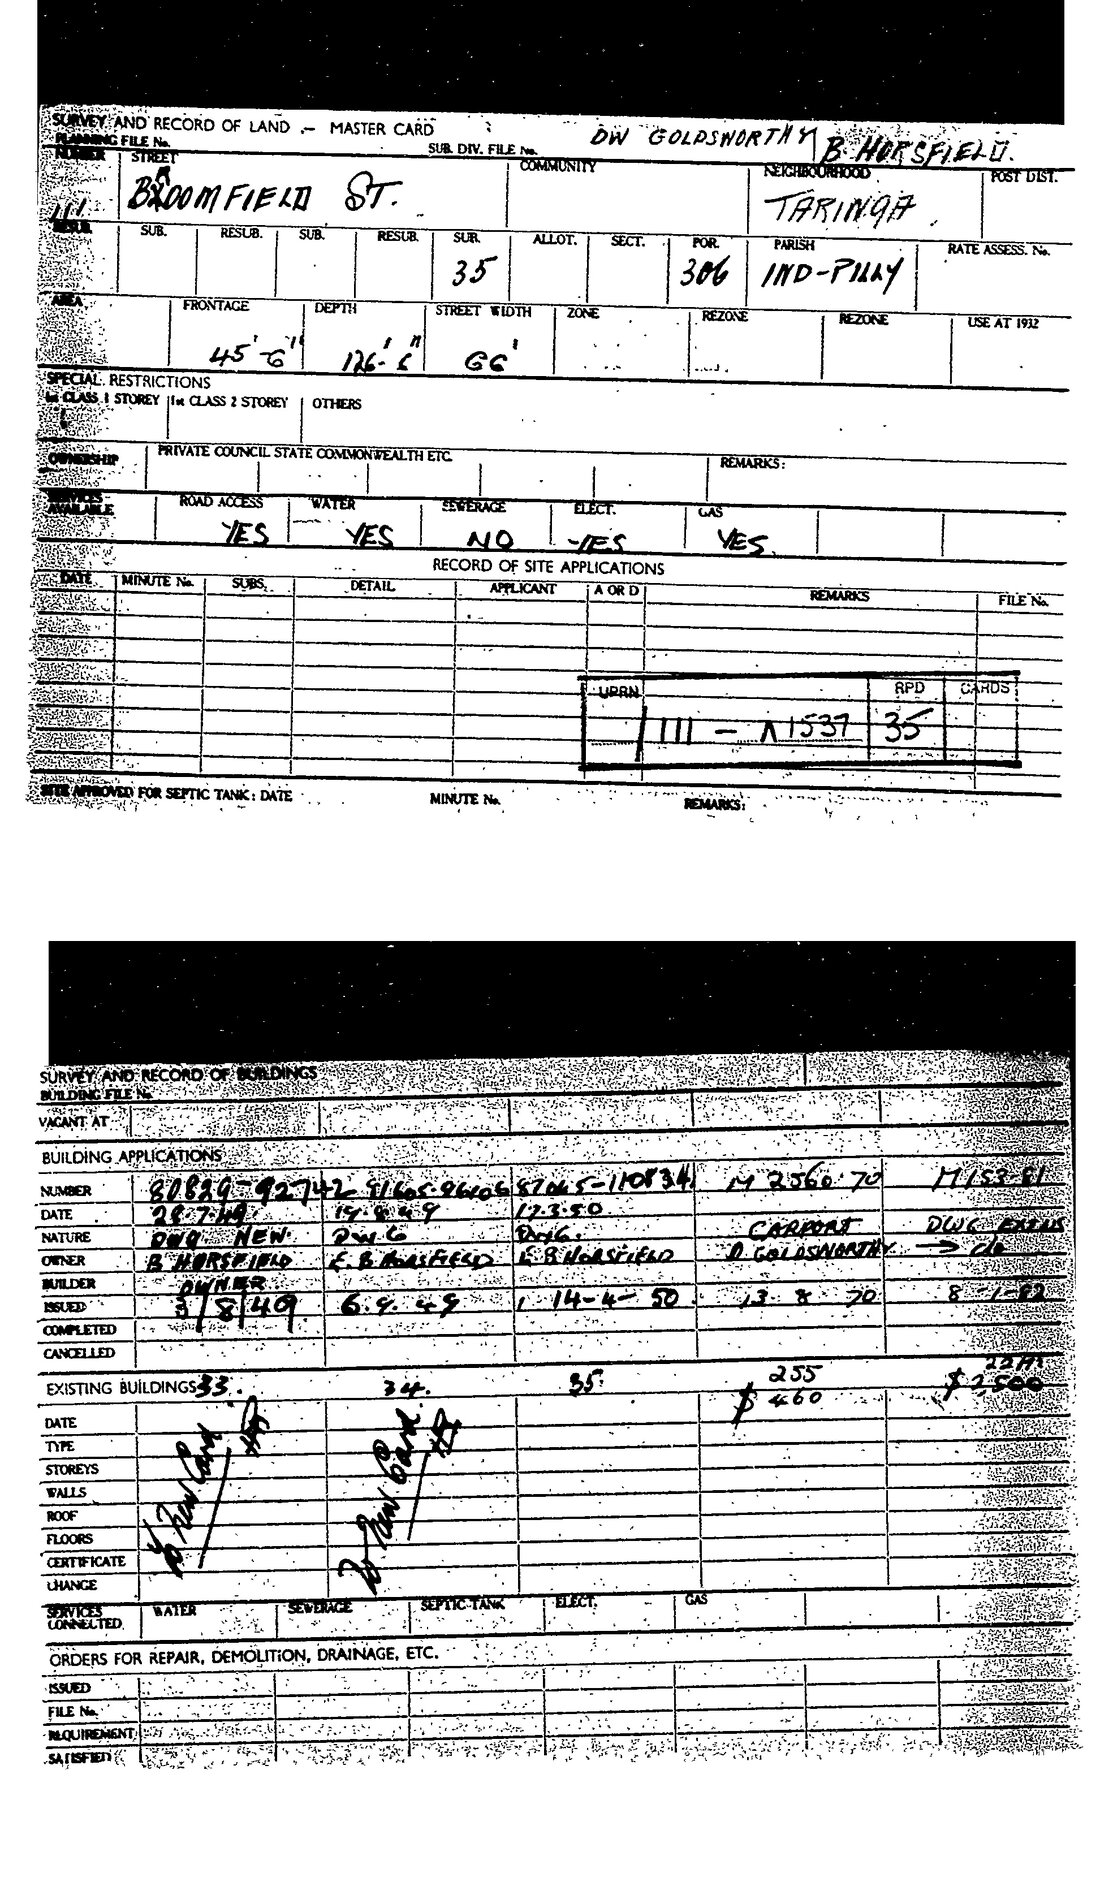 SURVEY AND RECORD OF LAND — MASTER CARD DW GOLDSWORTHY B. HORSFIELD.
PLANNING FILE No. SUB. DIV. FILE No.
NUMBER STREET COMMUNITY NEIGHBOURHOOD POST DIST.
BROOMFIELD ST. TARINGA
RESUB. SUB. RESUB. SUB. RESUB. SUB. ALLOT. SECT. POR. PARISH RATE ASSESS. No.
35 306 IND-PILLY
AREA FRONTAGE DEPTH STREET WIDTH ZONE REZONE REZONE USE AT 1932
45'-6" 126'-6" 66'
SPECIAL RESTRICTIONS
1st CLASS 1 STOREY 1st CLASS 2 STOREY OTHERS
OWNERSHIP PRIVATE COUNCIL STATE COMMONWEALTH ETC. REMARKS:
SERVICES AVAILABLE ROAD ACCESS WATER SEWERAGE ELECT. GAS
YES YES NO YES YES
RECORD OF SITE APPLICATIONS
DATE MINUTE No. SUBS. DETAIL APPLICANT A OR D REMARKS FILE No.
UPRN RPD CARDS
111 - 1537 35
SITE APPROVED FOR SEPTIC TANK: DATE MINUTE No. REMARKS:
SURVEY AND RECORD OF BUILDINGS
BUILDING FILE No.
VACANT AT
BUILDING APPLICATIONS
NUMBER 80829-92742 91605-96106 87065-110834 M 2560.70 M 153-81
DATE 28.7.49 19.8.49 17.3.50
NATURE DWG NEW. DWG DWG. CARPORT DWG EXTNS
OWNER B HORSFIELD E.B HORSFIELD E B HORSFIELD D. GOLDSWORTHY → do
BUILDER OWNER
ISSUED 3/8/49 6.9.49 14-4-50 13 8 70 8-1-82
COMPLETED
CANCELLED
EXISTING BUILDINGS 33. 34. 35. 255
$ 460 $ 2,500
DATE
TYPE
STOREYS
WALLS
ROOF
FLOORS
CERTIFICATE
CHANGE
To New Card To New Card
SERVICES CONNECTED WATER SEWERAGE SEPTIC TANK ELECT. GAS
ORDERS FOR REPAIR, DEMOLITION, DRAINAGE, ETC.
ISSUED
FILE No.
REQUIREMENT
SATISFIED